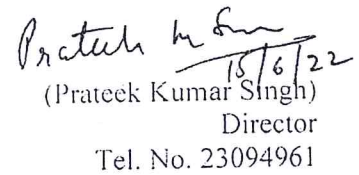 Prateek K Sin
15/6/22
(Prateek Kumar Singh)
Director
Tel. No. 23094961